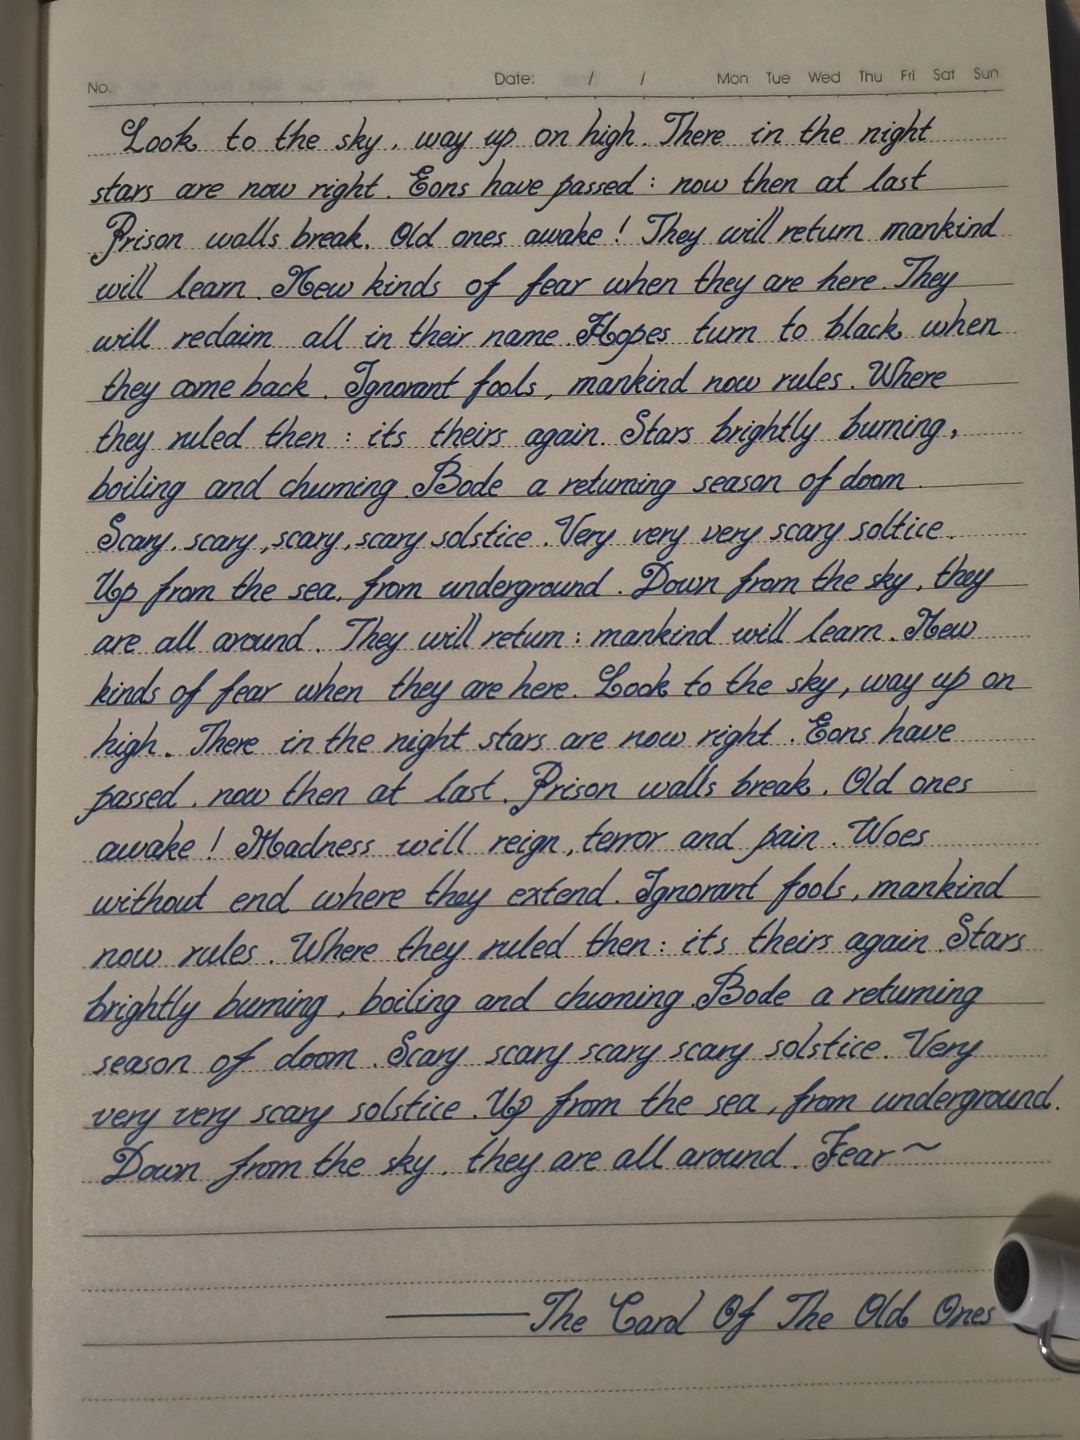 No.
Date: / / Mon Tue Wed Thu Fri Sat Sun
Look to the sky, way up on high. There in the night
stars are now right. Eons have passed: now then at last
Prison walls break. Old ones awake! They will return mankind
will learn. New kinds of fear when they are here. They
will reclaim all in their name. Hopes turn to black when
they come back. Ignorant fools, mankind now rules. Where
they ruled then: its theirs again. Stars brightly burning,
boiling and churning. Bode a returning season of doom.
Scary, scary, scary, scary solstice. Very very very scary soltice.
Up from the sea, from underground. Down from the sky, they
are all around. They will return: mankind will learn. New
kinds of fear when they are here. Look to the sky, way up on
high. There in the night stars are now right. Eons have
passed. now then at last. Prison walls break. Old ones
awake! Madness will reign, terror and pain. Woes
without end where they extend. Ignorant fools, mankind
now rules. Where they ruled then: its theirs again. Stars
brightly burning, boiling and churning. Bode a returning
season of doom. Scary scary scary scary solstice. Very
very very scary solstice. Up from the sea, from underground.
Down from the sky, they are all around. Fear~
——The Carol Of The Old Ones